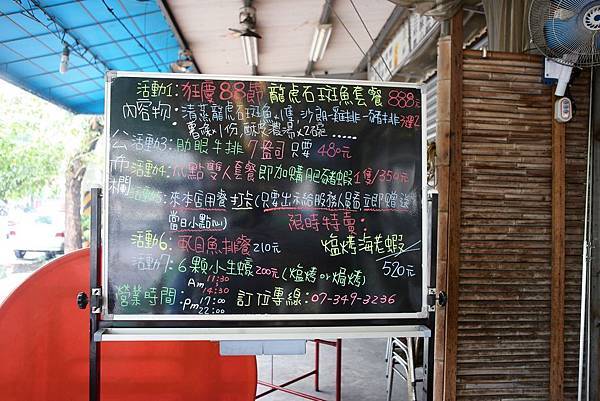 活動1:狂慶88節 龍虎石斑魚套餐 888元
內容物:清蒸龍虎石斑魚x1隻,沙朗-雞排-豬排3選2
薯條x1份,酥皮濃湯x2碗.....
公布欄
活動3:肋眼牛排7盎司 只要 480元
活動4:八點雙人套餐即加購肥豬蝦1隻/350元
活動5:來本店用餐打卡(只要出示給服務人員看立即贈送
當日小點心) 限時特賣:
活動6:虱目魚排餐210元 塩烤海老蝦
活動7:6顆小生蠔200元(塩烤or焗烤) 520元
營業時間:Am 11:30 14:30
pm 17:00 22:00 訂位專線:07-349-3236